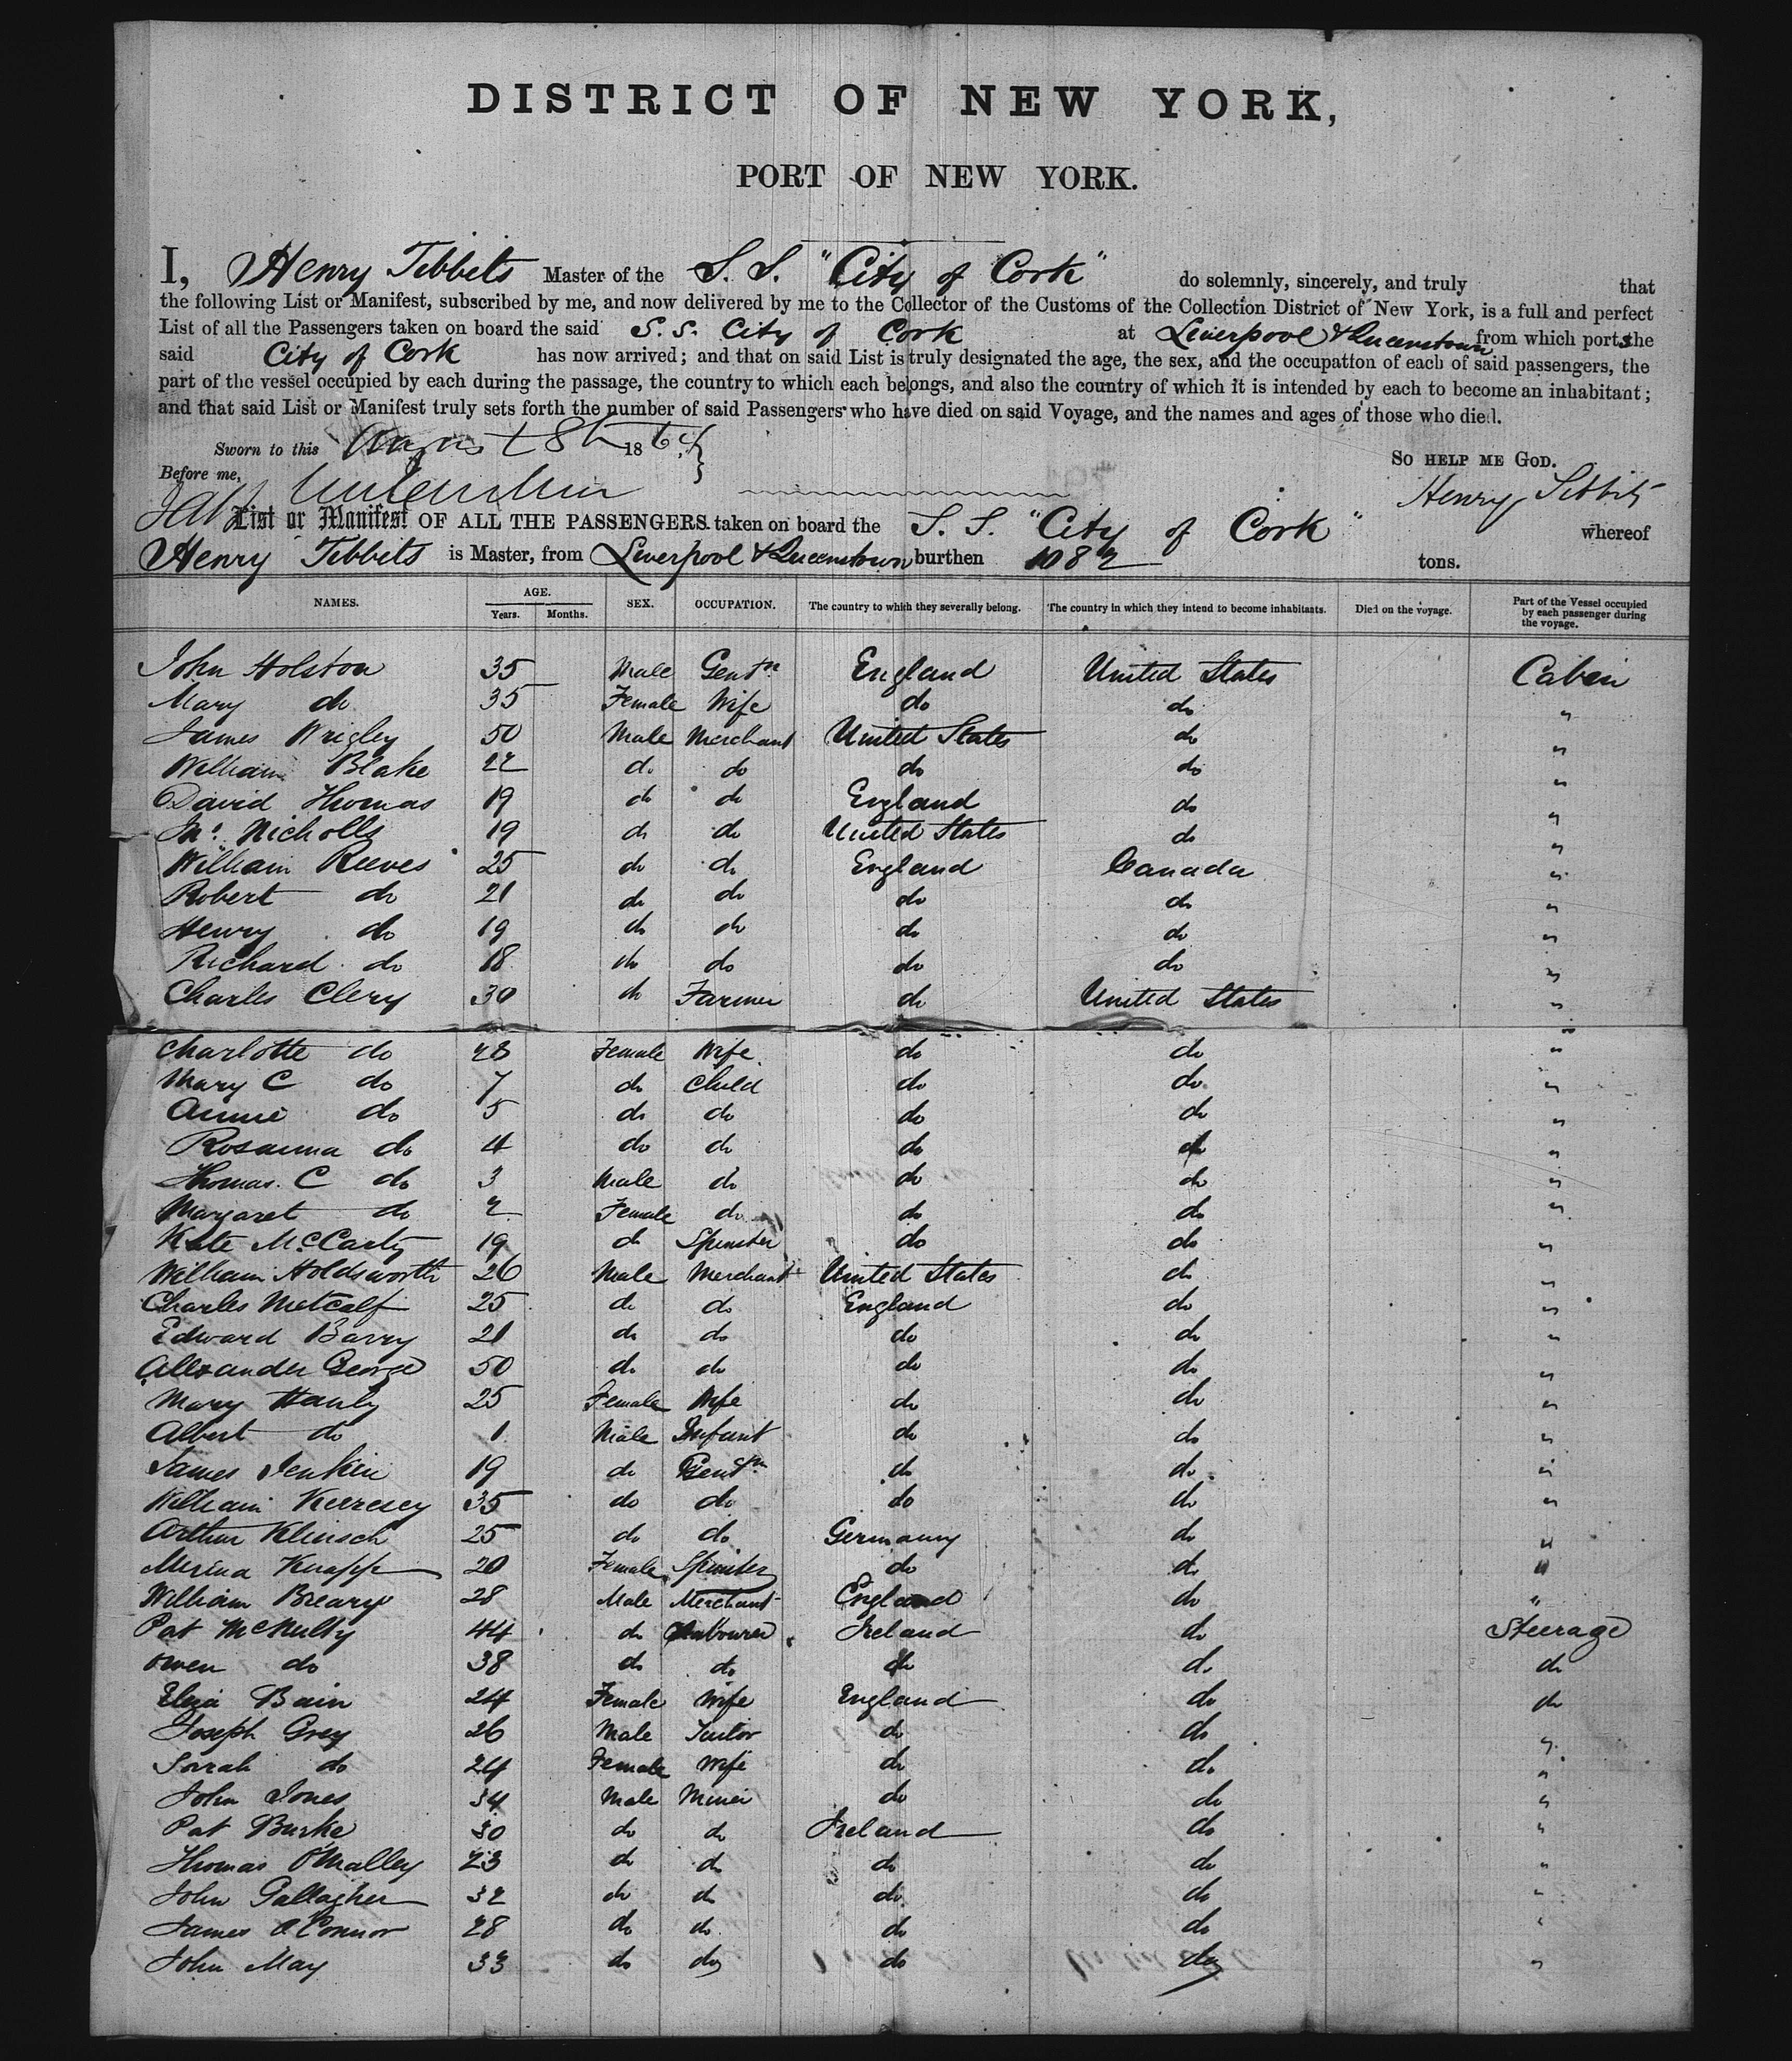 DISTRICT OF NEW YORK,
PORT OF NEW YORK.
I, Henry Tibbits Master of the S. S. "City of Cork" do solemnly, sincerely, and truly that
the following List or Manifest, subscribed by me, and now delivered by me to the Collector of the Customs of the Collection District of New York, is a full and perfect
List of all the Passengers taken on board the said S. S. City of Cork at Liverpool & Queenstown from which ports the
said City of Cork has now arrived; and that on said List is truly designated the age, the sex, and the occupation of each of said passengers, the
part of the vessel occupied by each during the passage, the country to which each belongs, and also the country of which it is intended by each to become an inhabitant;
and that said List or Manifest truly sets forth the number of said Passengers who have died on said Voyage, and the names and ages of those who died.
Sworn to this August 8th 1864 SO HELP ME GOD.
Before me, Henry Tibbits
List or Manifest OF ALL THE PASSENGERS taken on board the S. S. "City of Cork" whereof
Henry Tibbits is Master, from Liverpool & Queenstown burthen 1082 tons.
NAMES. AGE. Years. Months. SEX. OCCUPATION. The country to which they severally belong. The country in which they intend to become inhabitants. Died on the voyage. Part of the Vessel occupied by each passenger during the voyage.
John Holston 35 Male Gentn England United States Cabin
Mary do 35 Female Wife do do "
James Wrigley 50 Male Merchant United States do "
William Blake 22 do do do do "
David Thomas 19 do do England do "
Jno. Nicholls 19 do do United States do "
William Reeves 25 do do England Canada "
Robert do 21 do do do do "
Henry do 19 do do do do "
Richard do 18 do do do do "
Charles Clery 30 do Farmer do United States "
Charlotte do 28 Female Wife do do "
Mary C do 7 do Child do do "
Annie do 5 do do do do "
Rosanna do 4 do do do do "
Thomas C do 3 Male do do do "
Margaret do 2 Female do do do "
Kate McCarty 19 do Spinster do do "
William Holdsworth 26 Male Merchant United States do "
Charles Metcalf 25 do do England do "
Edward Barry 21 do do do do "
Alexander George 50 do do do do "
Mary Hanly 25 Female Wife do do "
Albert do 1 Male Infant do do "
James Jenkin 19 do Gentn do do "
William 35 do do do do "
Arthur Klinsch 25 do do Germany do "
Knapp 20 Female Spinster do do "
William Breary 28 Male Merchant England do "
Pat McNulty 44 do Labourer Ireland do Steerage
Owen do 38 do do do do do
Eliza Bain 24 Female Wife England do do
Joseph Grey 26 Male Tailor do do "
Sarah do 24 Female Wife do do "
John Jones 34 Male Miner do do "
Pat Burke 30 do do Ireland do "
Thomas O'Malley 23 do do do do "
John Gallagher 32 do do do do "
James O'Connor 28 do do do do "
John May 33 do do do do "